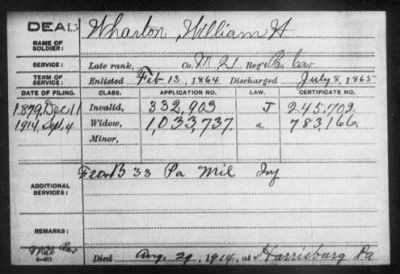 DEAD
NAME OF SOLDIER: Wharton, William H
SERVICE: Late rank, Co. M 21 Reg't Pa Cav
TERM OF SERVICE: Enlisted Feb 13, 1864 Discharged July 8, 1865
DATE OF FILING. CLASS. APPLICATION NO. LAW. CERTIFICATE NO.
1879, Dec 11 Invalid, 332,903 J 245,702
1914, Sept. 4 Widow, 1,033,737. 783,166
Minor,
ADDITIONAL SERVICES: B 33 Pa Mil Inf
REMARKS:
Died Aug. 29, 1914, at Harrisburg Pa